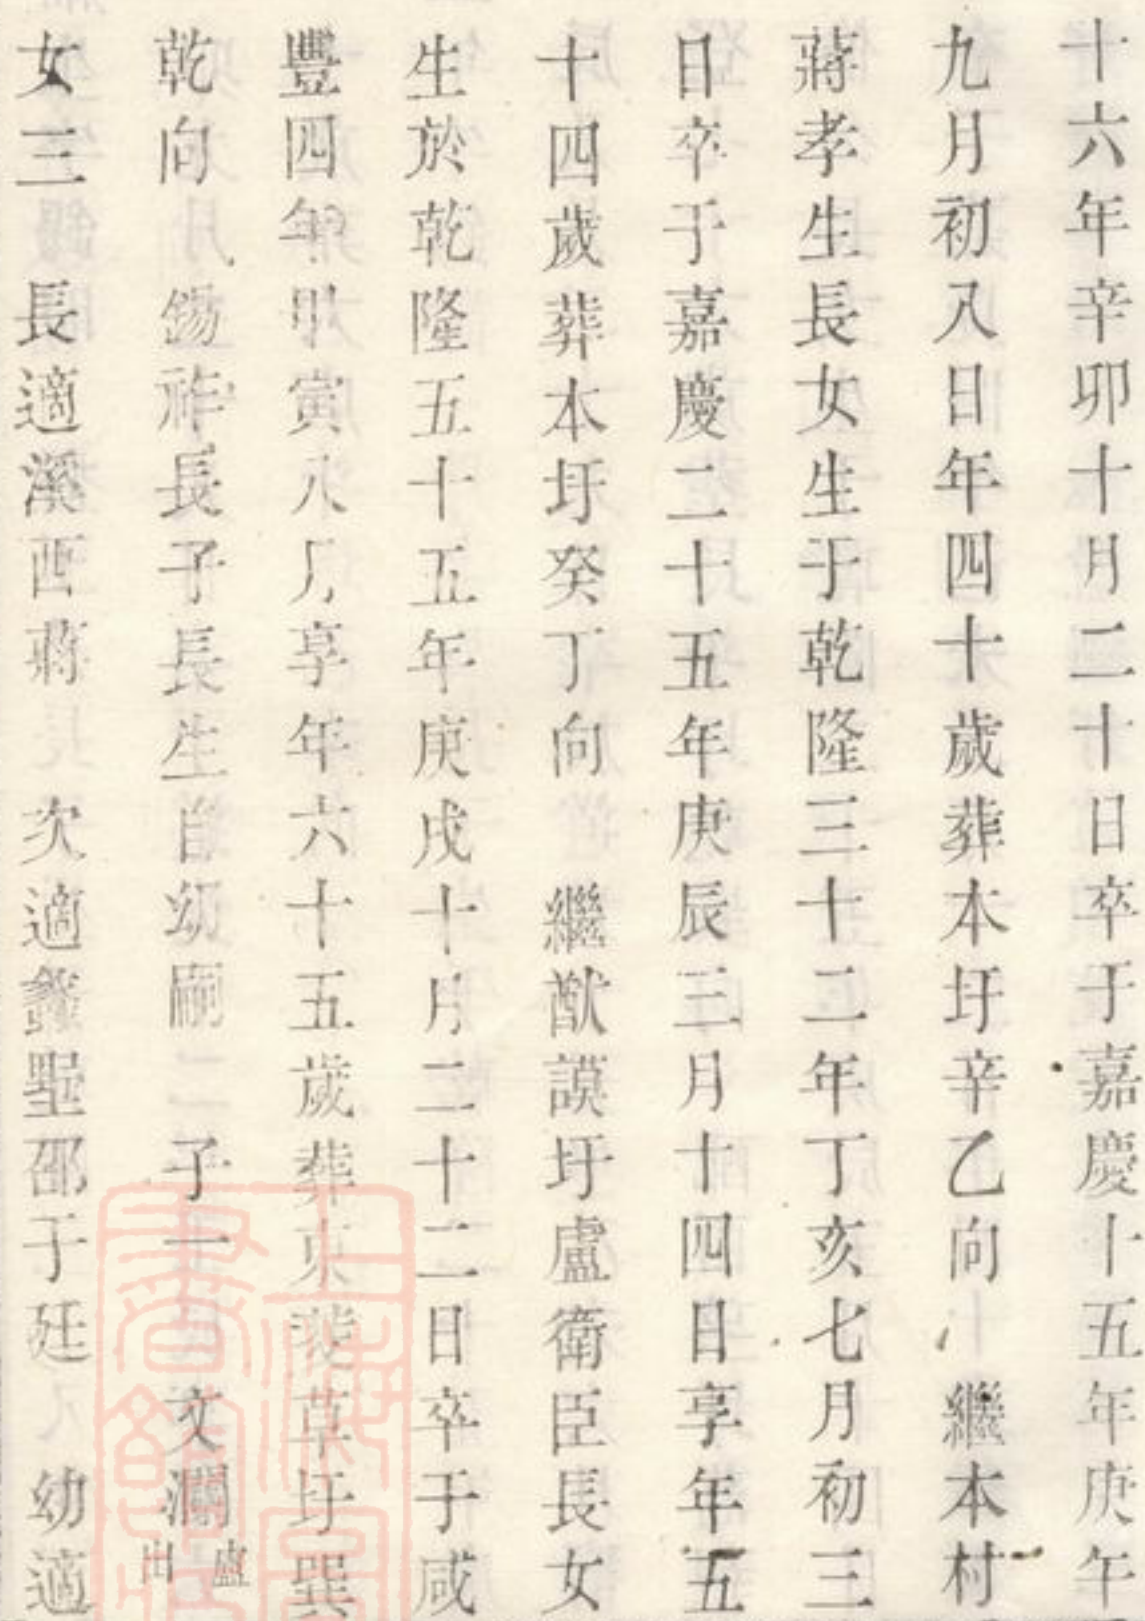 十六年辛卯十月二十日卒于嘉慶十五年庚午
九月初八日年四十歲葬本圩辛乙向 繼本村
蔣孝生長女生于乾隆三十二年丁亥七月初三
日卒于嘉慶二十五年庚辰三月十四日享年五
十四歲葬本圩癸丁向 繼猷謨圩盧衛臣長女
生於乾隆五十五年庚戌十月二十二日卒于咸
豐四年甲寅八月享年六十五歲葬東斐草圩巽
乾向 錫祚長子長生自幼嗣二子一 文瀾盧出
女三 長適溪西蔣 次適墅邵于廷 幼適